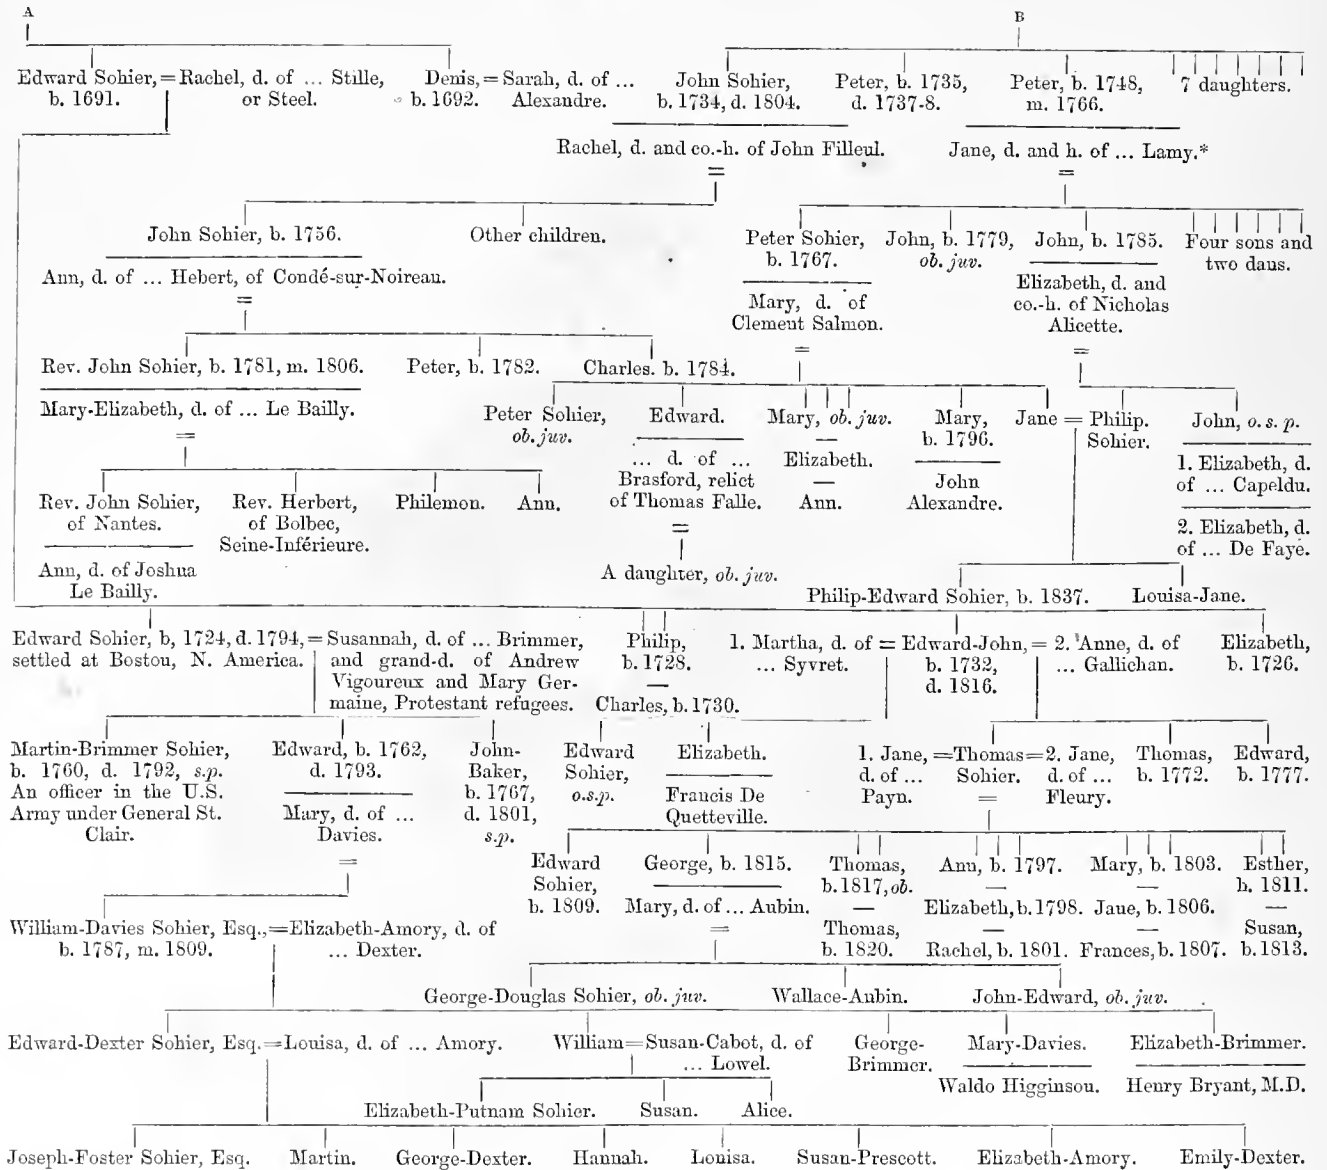 A
B
Edward Sohier,=Rachel, d. of ... Stille,
b. 1691.
or Steel.
Denis,=Sarah, d. of ...
b. 1692.
Alexandre.
John Sohier,
b. 1734, d. 1804.
Peter, b. 1735,
d. 1737-8.
Peter, b. 1748,
m. 1766.
7 daughters.
Rachel, d. and co.-h. of John Filleul.
=
Jane, d. and h. of ... Lamy.*
=
John Sohier, b. 1756.
Ann, d. of ... Hebert, of Condé-sur-Noireau.
=
Other children.
Peter Sohier,
b. 1767.
Mary, d. of
Clement Salmon.
=
John, b. 1779,
ob. juv.
John, b. 1785.
Elizabeth, d. and
co.-h. of Nicholas
Alicette.
=
Four sons and
two daus.
Rev. John Sohier, b. 1781, m. 1806.
Mary-Elizabeth, d. of ... Le Bailly.
=
Peter, b. 1782.
Charles. b. 1784.
Peter Sohier,
ob. juv.
Edward.
... d. of ...
Brasford, relict
of Thomas Falle.
=
Mary, ob. juv.
—
Elizabeth.
—
Ann.
Mary,
b. 1796.
John
Alexandre.
Jane = Philip.
Sohier.
John, o. s. p.
1. Elizabeth, d.
of ... Capeldu.
2. Elizabeth, d.
of ... De Faye.
Rev. John Sohier,
of Nantes.
Ann, d. of Joshua
Le Bailly.
Rev. Herbert,
of Bolbec,
Seine-Inférieure.
Philemon.
Ann.
A daughter, ob. juv.
Philip-Edward Sohier, b. 1837.
Louisa-Jane.
Edward Sohier, b, 1724, d. 1794,=Susannah, d. of ... Brimmer,
settled at Bostou, N. America.
and grand-d. of Andrew
Vigoureux and Mary Ger-
maine, Protestant refugees.
Philip,
b. 1728.
—
Charles, b. 1730.
1. Martha, d. of = Edward-John, = 2. Anne, d. of
... Syvret.
b. 1732,
d. 1816.
... Gallichan.
Elizabeth,
b. 1726.
Martin-Brimmer Sohier,
b. 1760, d. 1792, s.p.
An officer in the U.S.
Army under General St.
Clair.
Edward, b. 1762,
d. 1793.
Mary, d. of ...
Davies.
=
John-
Baker,
b. 1767,
d. 1801,
s.p.
Edward
Sohier,
o.s.p.
Elizabeth.
Francis De
Quetteville.
1. Jane, =Thomas=2. Jane,
d. of ...
Payn.
Sohier.
=
d. of ...
Fleury.
Thomas,
b. 1772.
Edward,
b. 1777.
Edward
Sohier,
b. 1809.
George, b. 1815.
Mary, d. of ... Aubin.
=
Thomas,
b. 1817, ob.
—
Thomas,
b. 1820.
Ann, b. 1797.
—
Elizabeth, b. 1798.
—
Rachel, b. 1801.
Mary, b. 1803.
—
Jaue, b. 1806.
—
Frances, b. 1807.
Esther,
b. 1811.
—
Susan,
b. 1813.
William-Davies Sohier, Esq.,=Elizabeth-Amory, d. of
b. 1787, m. 1809.
... Dexter.
George-Douglas Sohier, ob. juv.
Wallace-Aubin.
John-Edward, ob. juv.
Edward-Dexter Sohier, Esq.=Louisa, d. of ... Amory.
William=Susan-Cabot, d. of
... Lowel.
George-
Brimmer.
Mary-Davies.
Waldo Higginsou.
Elizabeth-Brimmer.
Henry Bryant, M.D.
Elizabeth-Putnam Sohier.
Susan.
Alice.
Joseph-Foster Sohier, Esq.
Martin.
George-Dexter.
Hannah.
Louisa.
Susan-Prescott.
Elizabeth-Amory.
Emily-Dexter.